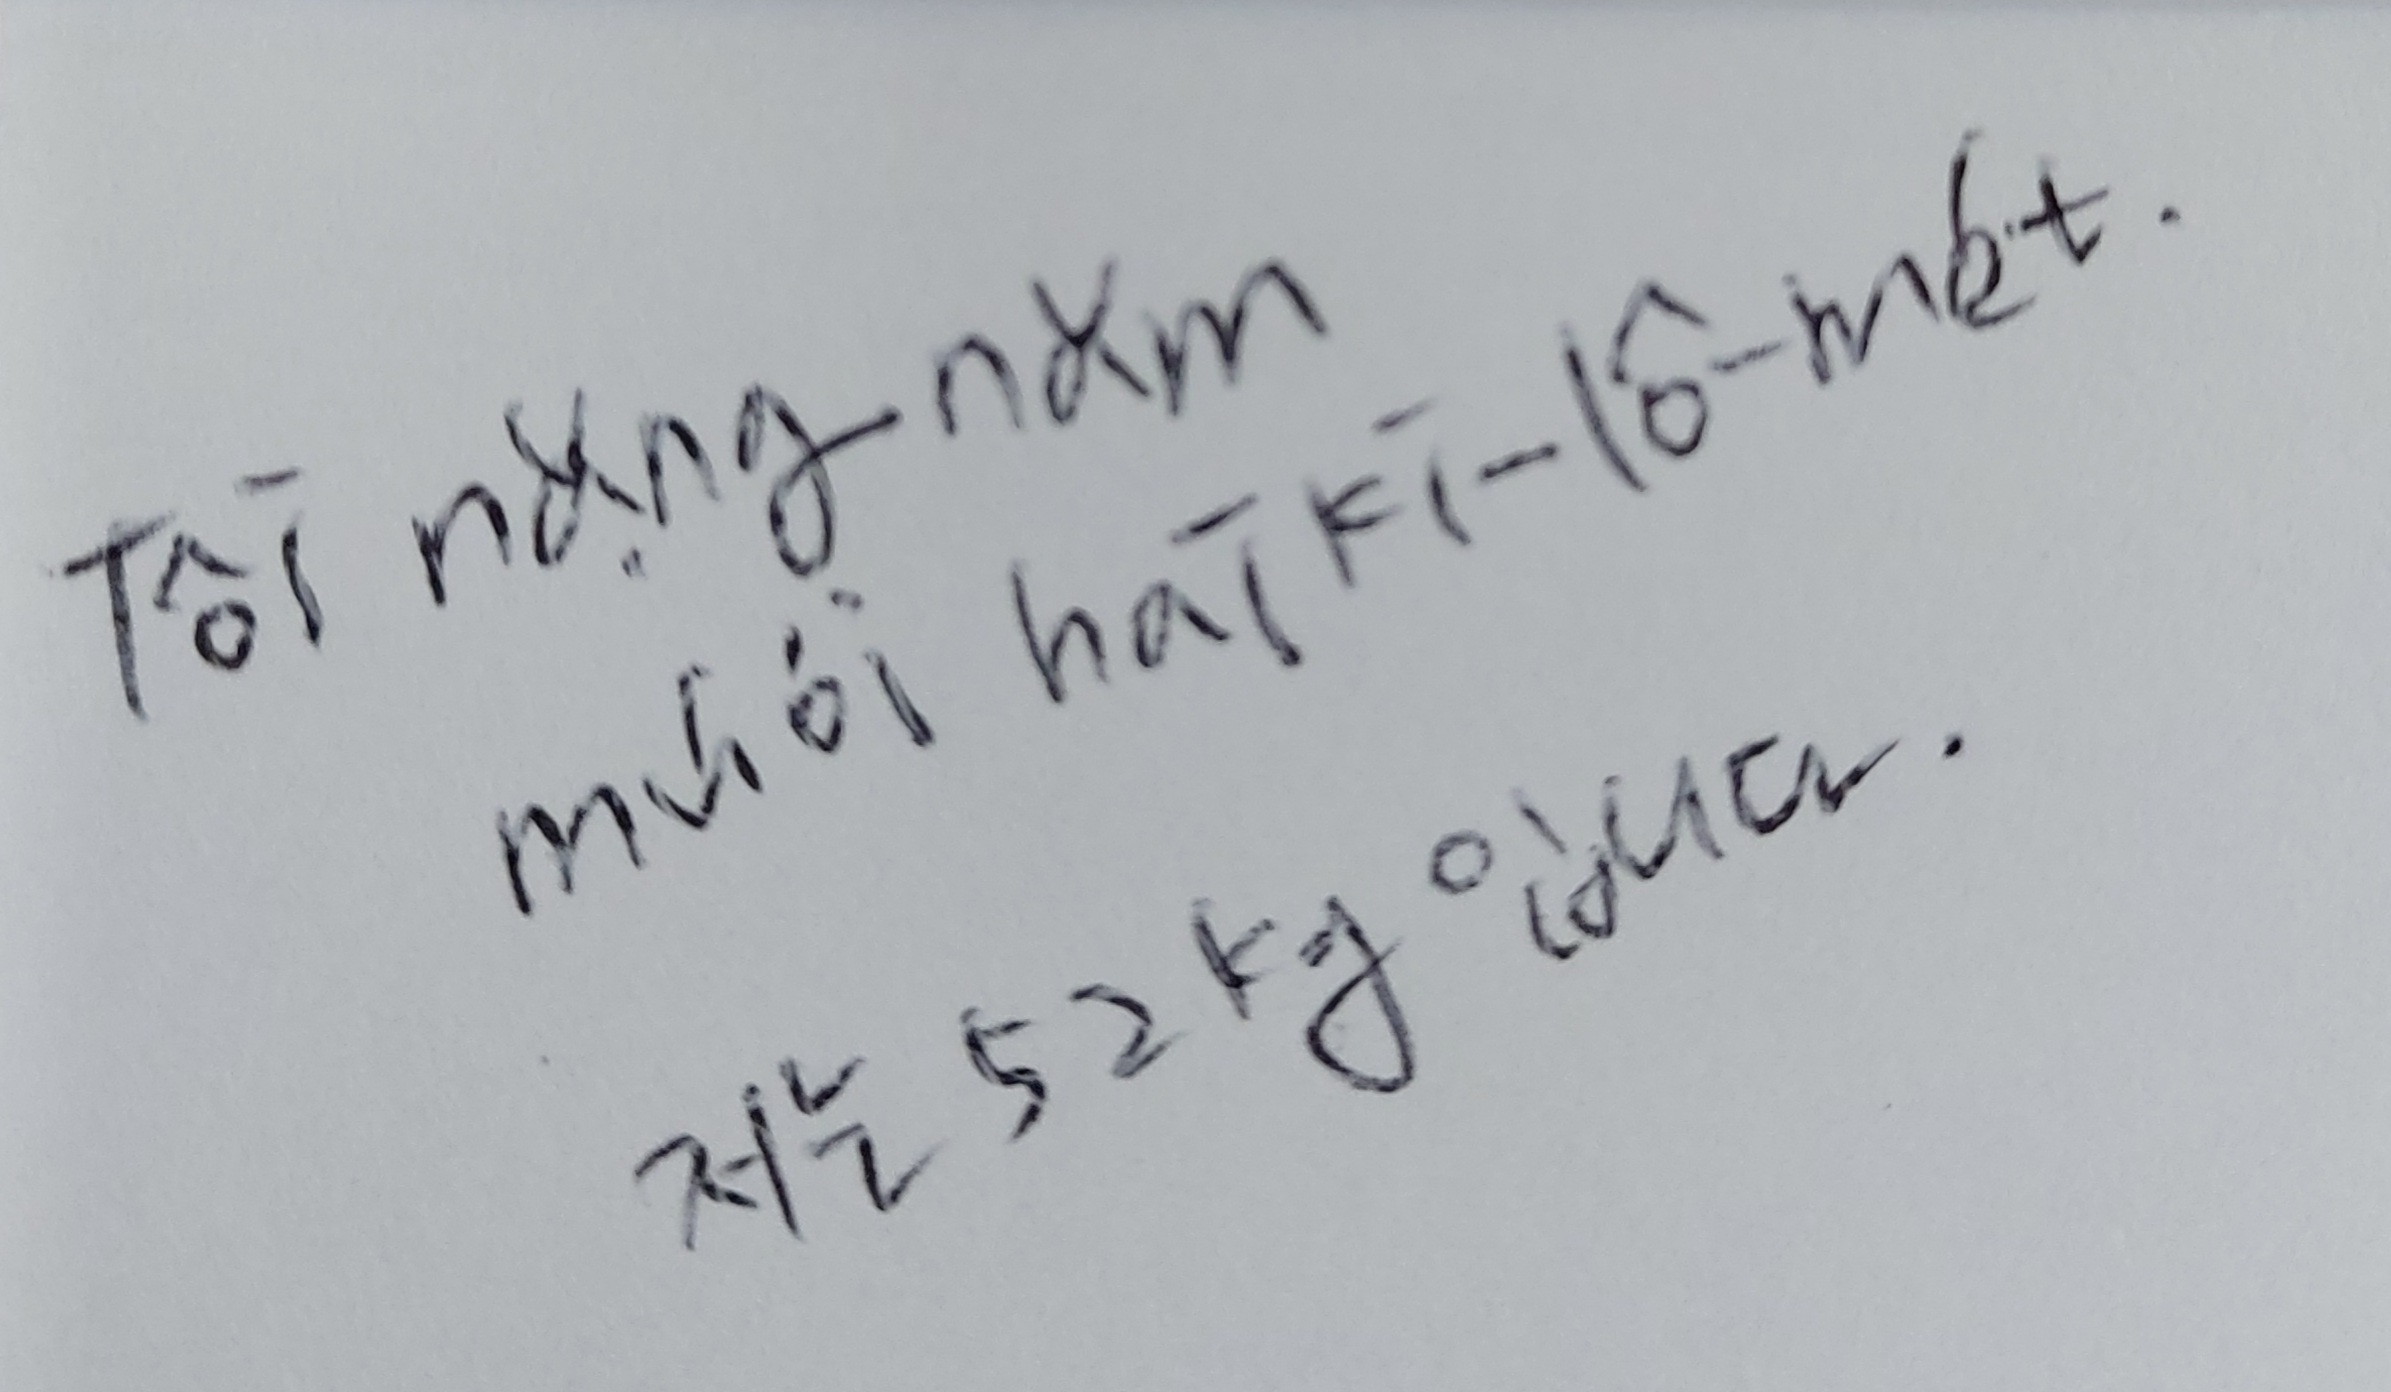 Tôi nặng năm
mươi hai ki-lô-mét.
저는 52kg 입니다.